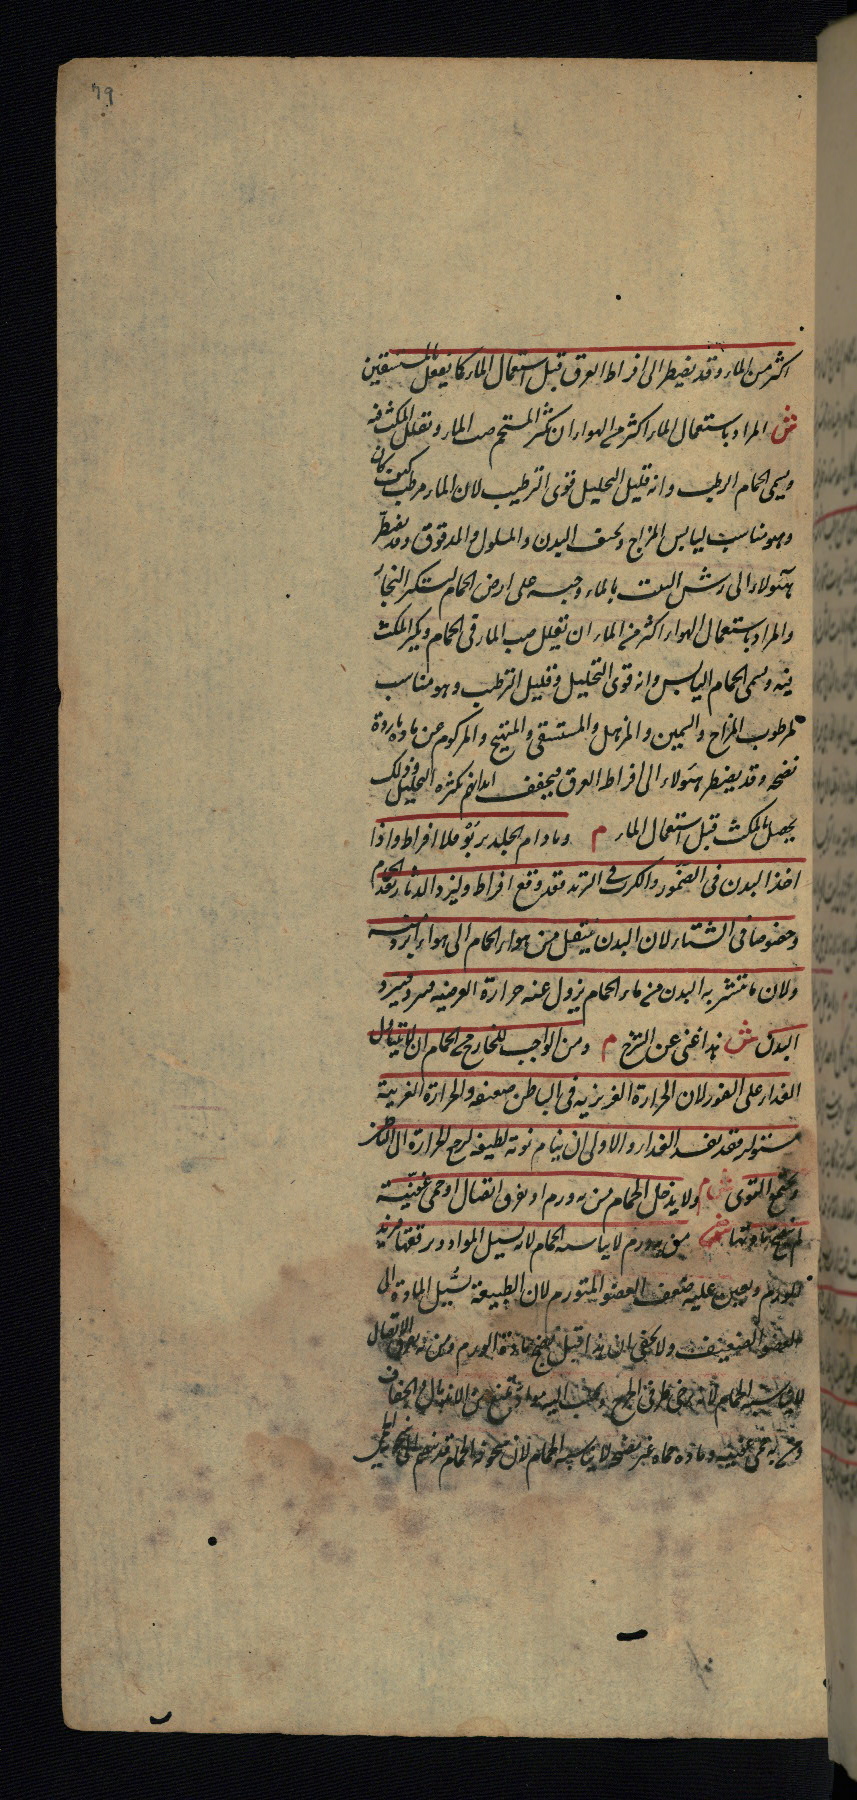 79
اكثر من الماء وقد يضطر الى افراط العرق قبل استعمال الماء كما يفعل بالمستسقين
ش المراد باستعمال الماء اكثر من الهواء ان يكثر المستحم صب الماء وتقلل المكث فيه
ويسمى الحمام الرطب وانه قليل التحليل قوى الترطيب لان الماء مرطب كيف كان
وهو مناسب ليابس المزاج ونحيف البدن والمسلول والمدقوق وقد يضطر
هؤلاء الى رش البيت بالماء وصبه على ارض الحمام ليتكثر البخار
والمراد باستعمال الهواء اكثر من الماء ان يقلل صب الماء فى الحمام ويكثر المكث
فيه ويسمى الحمام اليابس وانه قوى التحليل وقليل الترطيب وهو مناسب
لمرطوب المزاج والسمين والمترهل والمستسقى والمتهيج والمزكوم عن مادة باردة
نضجه وقد يضطر هؤلاء الى افراط العرق ليجفف ابدانهم بكثرة التحليل وذلك
يحصل بالمكث قبل استعمال الماء م وما دام الجلد يربو فلا افراط واذا
اخذ البدن فى الضمور والكرب فى التزيد فقد وقع افراط وليزد الدثار بعد الحمام
وخصوصا فى الشتاء لان البدن ينتقل من هواء الحمام الى هواء ابرد منه
ولان ما تتشربه البدن من ماء الحمام يزول عنه حرارة العرضيه فيبرد ويبرد
البدن ش هذا غنى عن الشرح م ومن الواجب للخارج من الحمام ان لا يتناول
الغذاء على الفور لان الحرارة الغريزيه فى الباطن ضعيفه والحرارة الغريبة
مستوليه فقد يفسد الغذاء والاولى ان ينام نومة لطيفه لترجع الحرارة الى الباطن
وتجتمع القوى ش م ولا يدخل الحمام من به ورم او تفرق اتصال او حمى عفنيّة
لم تنضج مادتها ش من به ورم لا يناسبه الحمام لانه يسيل المواد ويرققها فيزيد
للورم ويعين عليه ضعف العضو المتورم لان الطبيعة تسيل المادة الى
العضو الضعيف ولا يخفى ان هذا قبل نضج مادة الورم ومن به تفرق الاتصال
لا يناسبه الحمام لانه يرخى طرفى الجرح ويجلب اليه مواد تمنع من الاندمال والجفاف
ومن به حمى عفنيه ومادة حماه غير نضيجه لا يناسبه الحمام لان سخونة الحمام